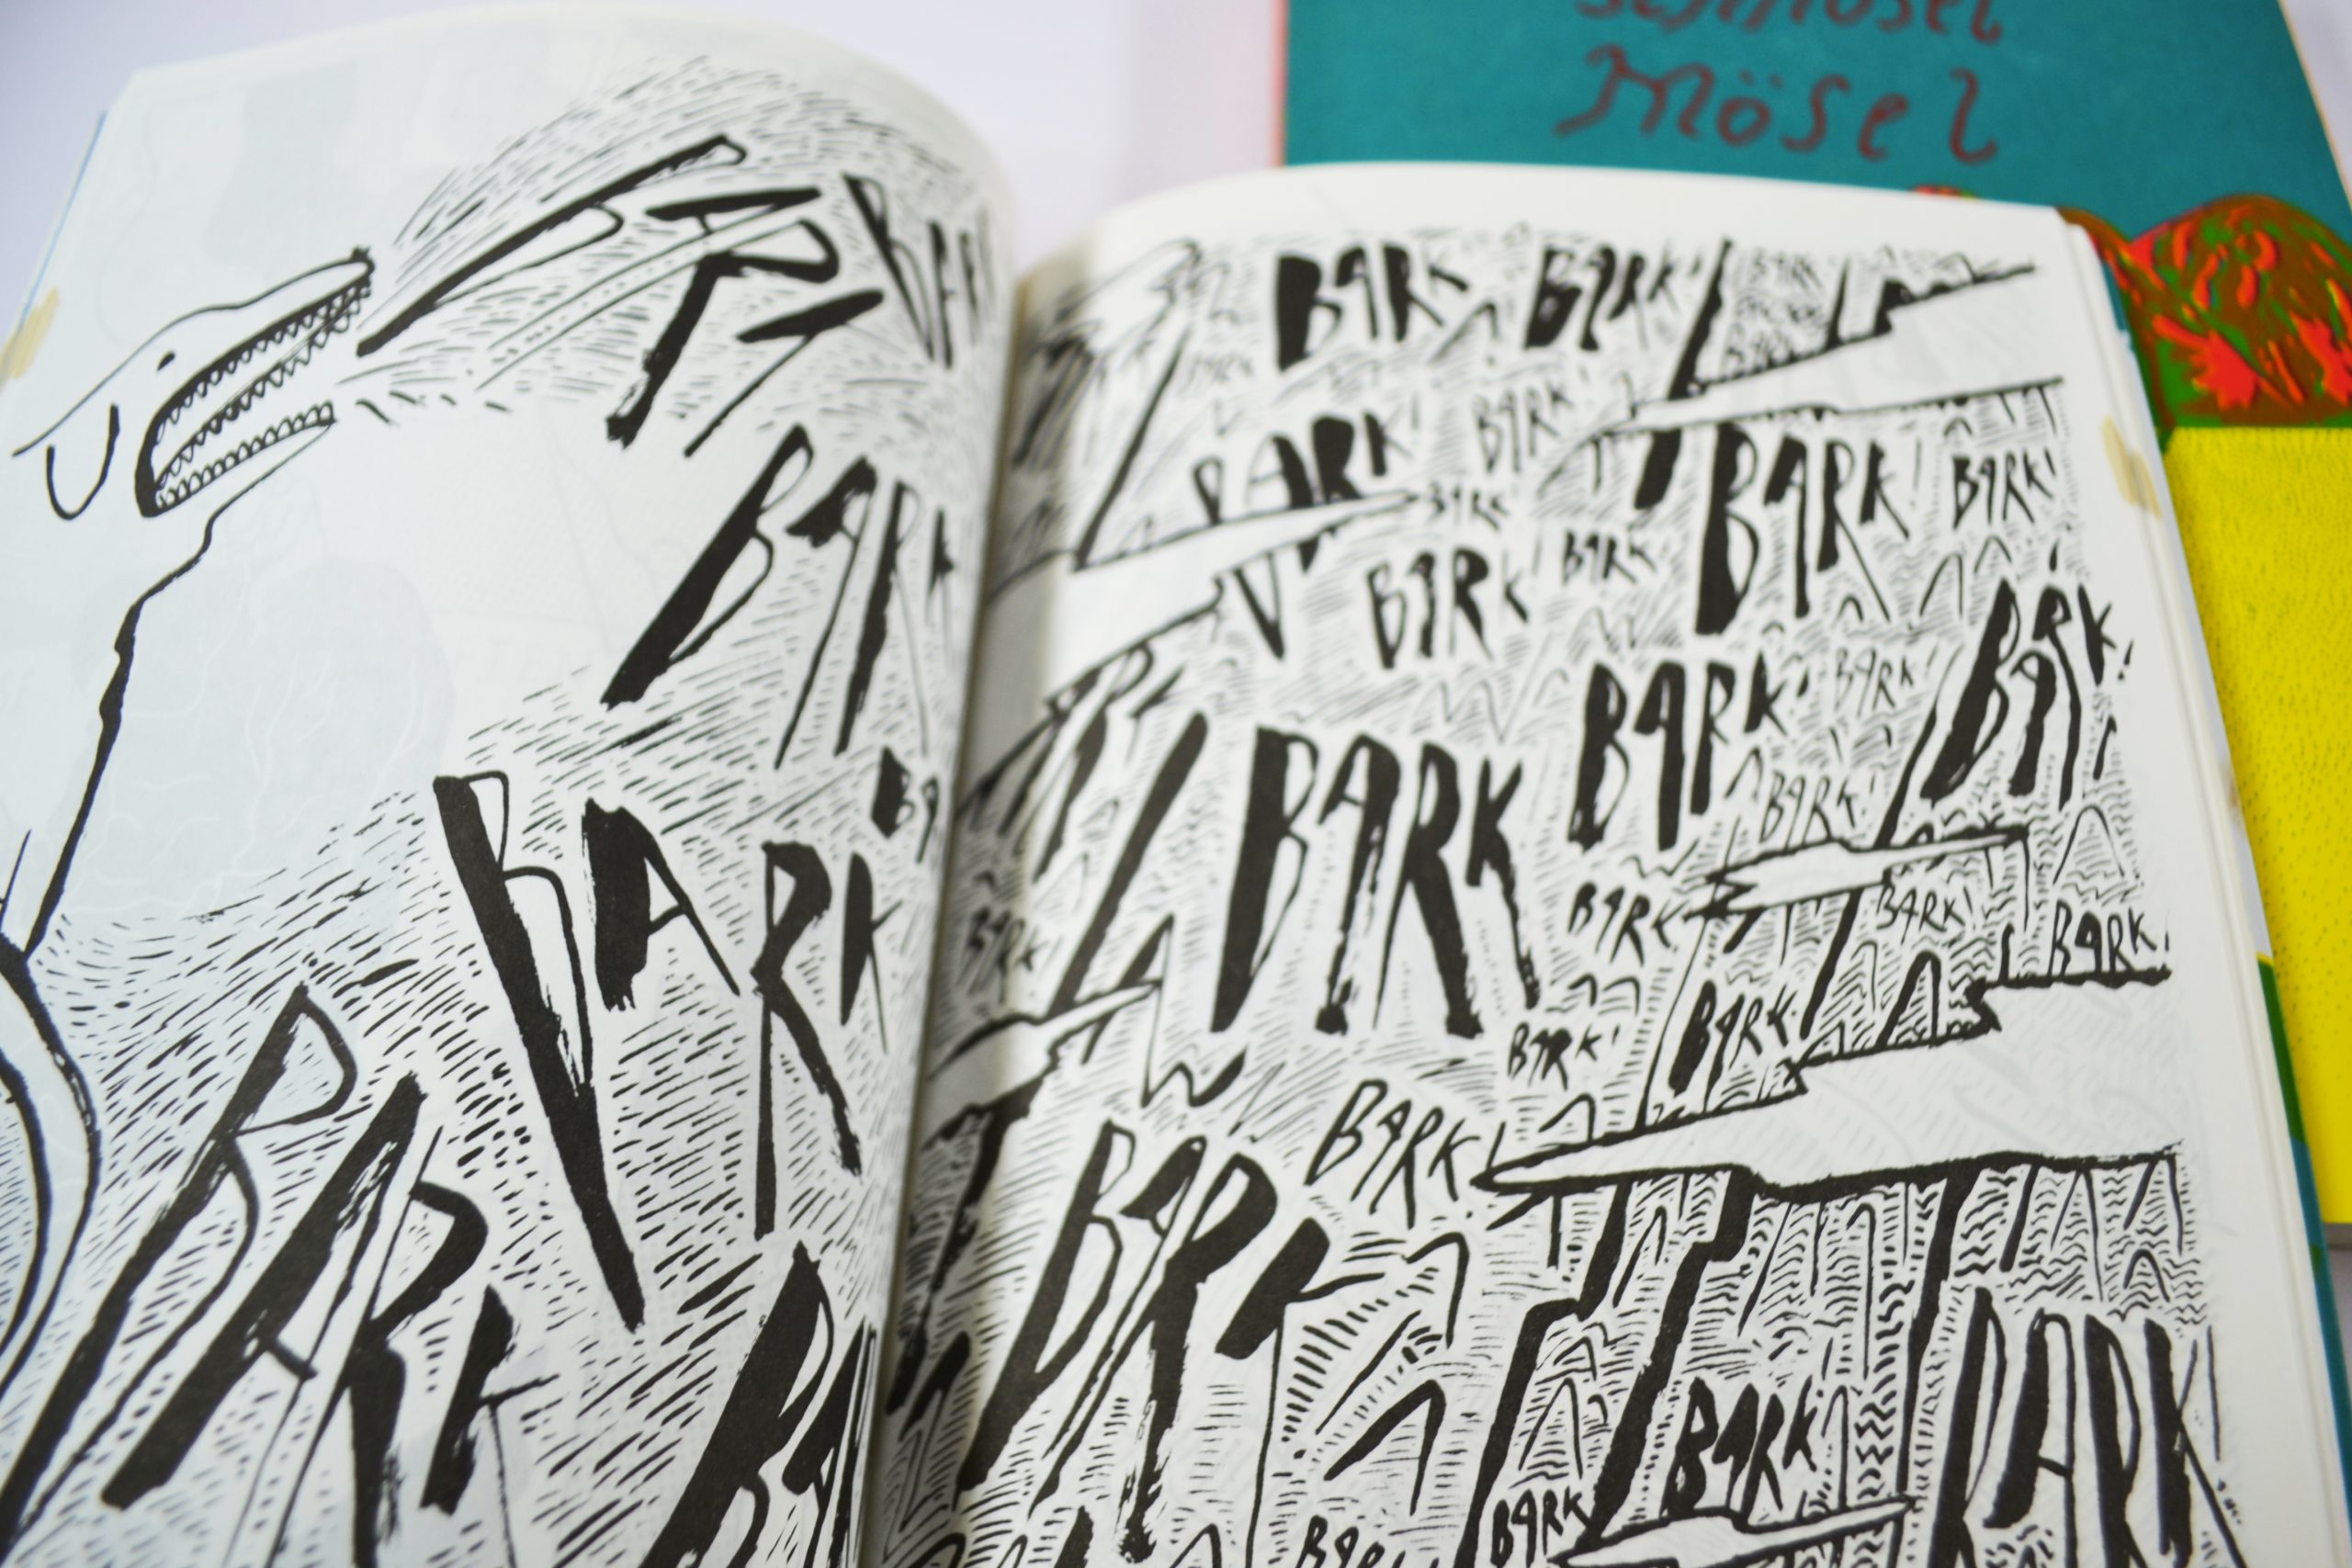 schmösel
Mösel
BARK
BARK
BARK
BARK
BARK
BARK
BARK!
BARK
BARK!
BARK!
BARK
BARK!
BARK!
BARK!
BARK
BARK
BARK!
BARK!
BARK!
BARK!
BARK
BARK
BARK
BARK!
BARK!
BARK
BARK!
BARK!
BARK
BARK
BARK
BARK